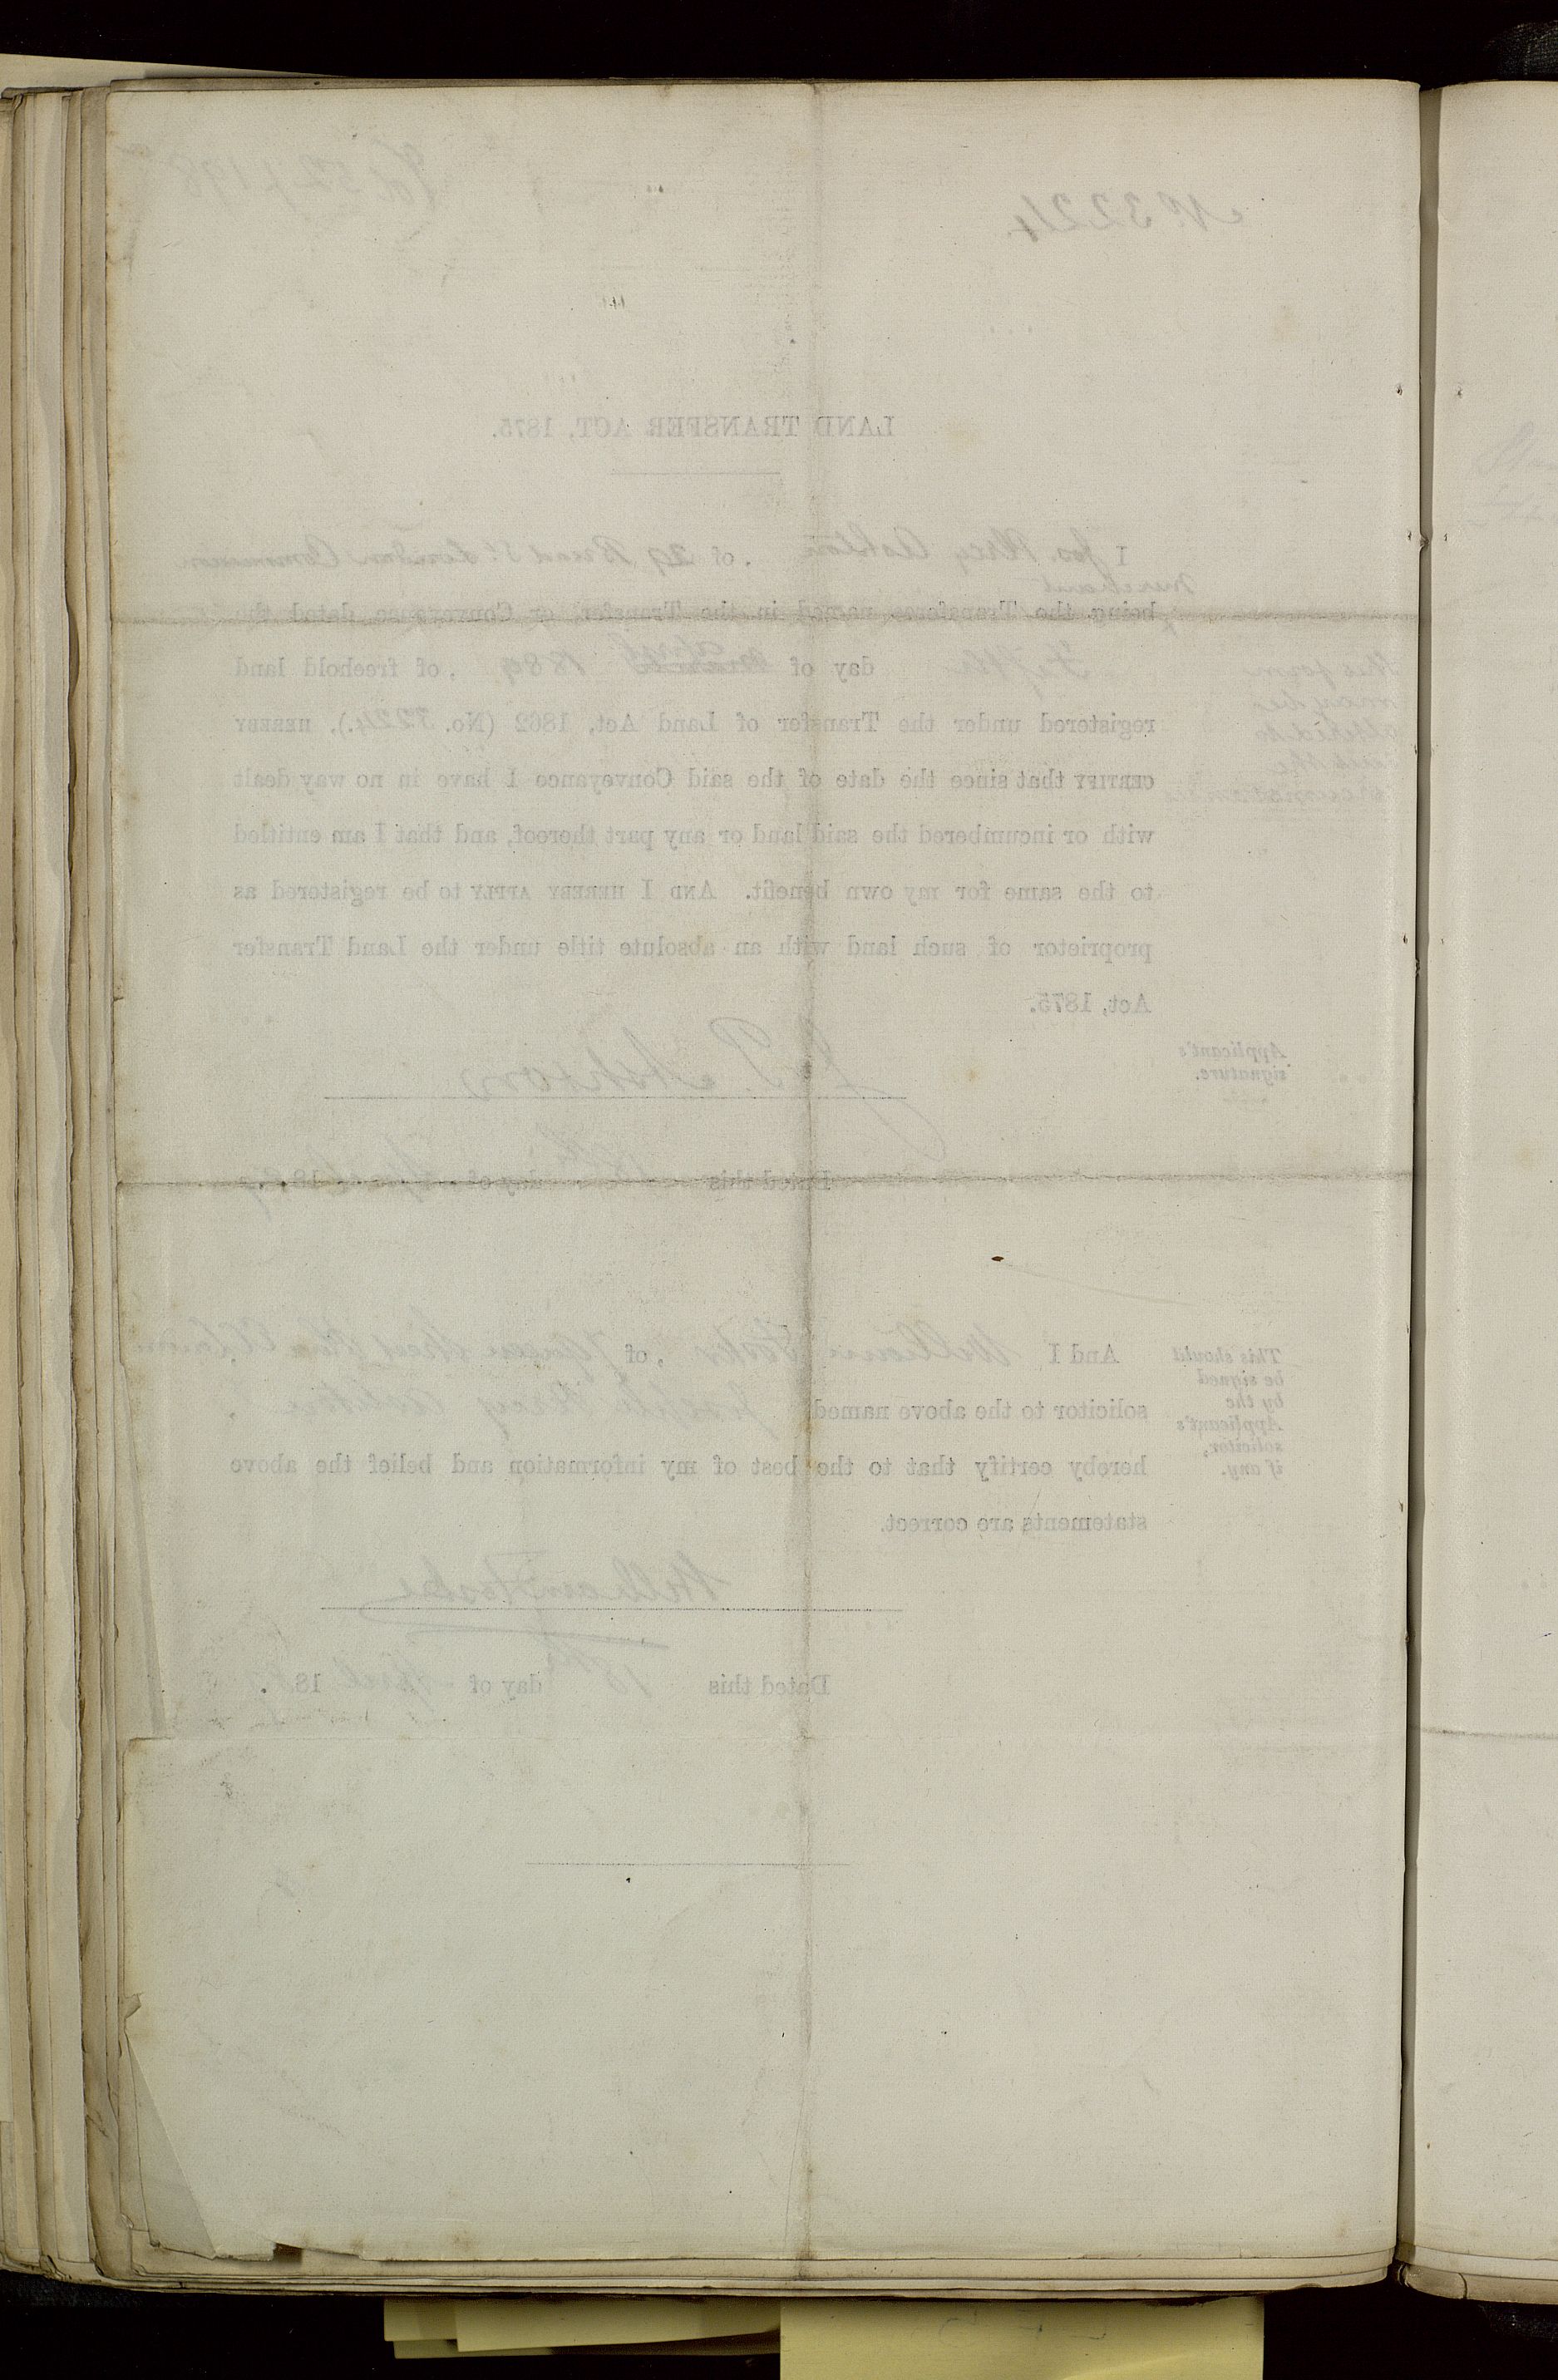 No. 3224.
LAND TRANSFER ACT, 1875.
I Jos. Percy Ashton, of 29 Bread St. London Commission
Merchant
being the Transferee named in the Transfer or Conveyance dated the
Fifth day of March April 1889, of freehold land
registered under the Transfer of Land Act, 1862 (No. 3224.), HEREBY
CERTIFY that since the date of the said Conveyance I have in no way dealt
with or incumbered the said land or any part thereof, and that I am entitled
to the same for my own benefit. AND I HEREBY APPLY to be registered as
proprietor of such land with an absolute title under the Land Transfer
Act, 1875.
This form
may be
altered to
suit the
circumstances
Applicant's
signature.
J. P. Ashton
Dated this 18th day of April 1889.
This should
be signed
by the
Applicant's
solicitor,
if any.
And I William , of Queen Street
solicitor to the above named Joseph Percy Ashton
hereby certify that to the best of my information and belief the above
statements are correct.
William
Dated this 18th day of April 188 .